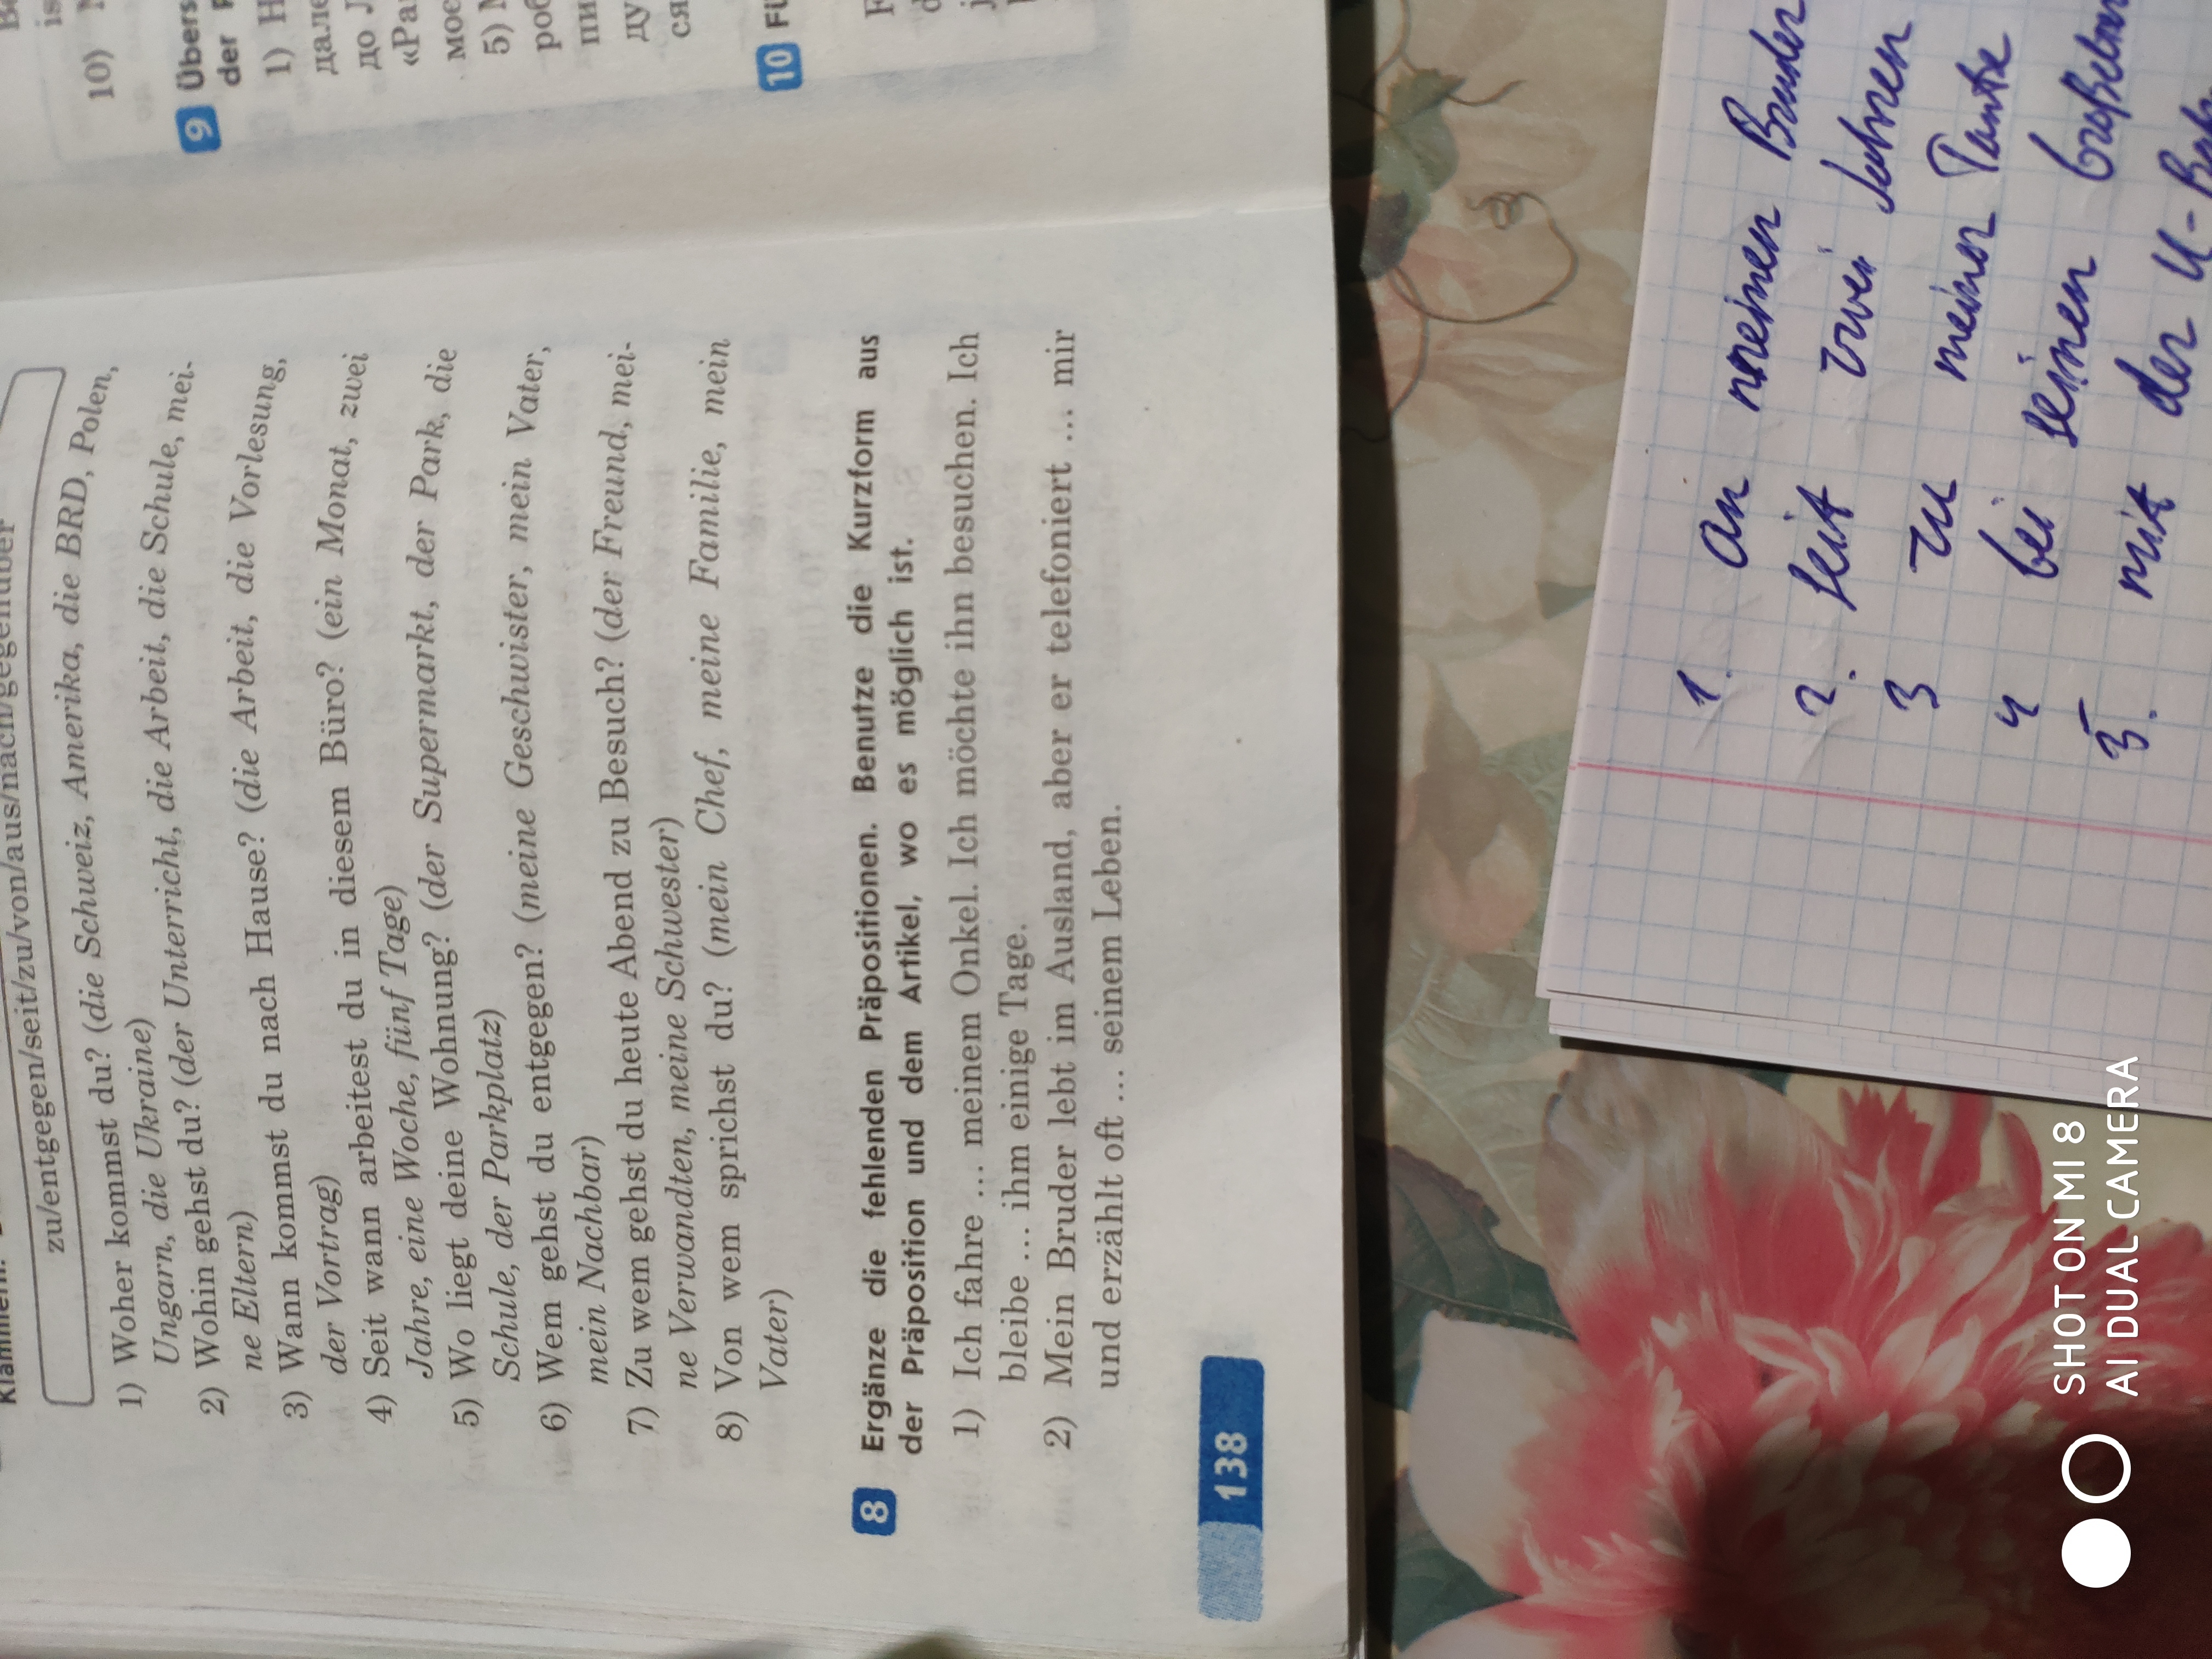 zu/entgegen/seit/zu/von/aus/nach/gegenüber
1) Woher kommst du? (die Schweiz, Amerika, die BRD, Polen,
Ungarn, die Ukraine)
2) Wohin gehst du? (der Unterricht, die Arbeit, die Schule, mei-
ne Eltern)
3) Wann kommst du nach Hause? (die Arbeit, die Vorlesung,
der Vortrag)
4) Seit wann arbeitest du in diesem Büro? (ein Monat, zwei
Jahre, eine Woche, fünf Tage)
5) Wo liegt deine Wohnung? (der Supermarkt, der Park, die
Schule, der Parkplatz)
6) Wem gehst du entgegen? (meine Geschwister, mein Vater,
mein Nachbar)
7) Zu wem gehst du heute Abend zu Besuch? (der Freund, mei-
ne Verwandten, meine Schwester)
8) Von wem sprichst du? (mein Chef, meine Familie, mein
Vater)
8 Ergänze die fehlenden Präpositionen. Benutze die Kurzform aus
der Präposition und dem Artikel, wo es möglich ist.
1) Ich fahre ... meinem Onkel. Ich möchte ihn besuchen. Ich
bleibe ... ihm einige Tage.
2) Mein Bruder lebt im Ausland, aber er telefoniert ... mir
und erzählt oft ... seinem Leben.
138
10)
9 Übers
der
1) Н
дале
до
«Ра
мое
5)
роб
пи
ду
ся
10
1. an meinen Bruder
2. seit zwei Jahren
3 zu meiner Tante
4 bei seinen
5. mit der U-
SHOT ON MI 8
AI DUAL CAMERA